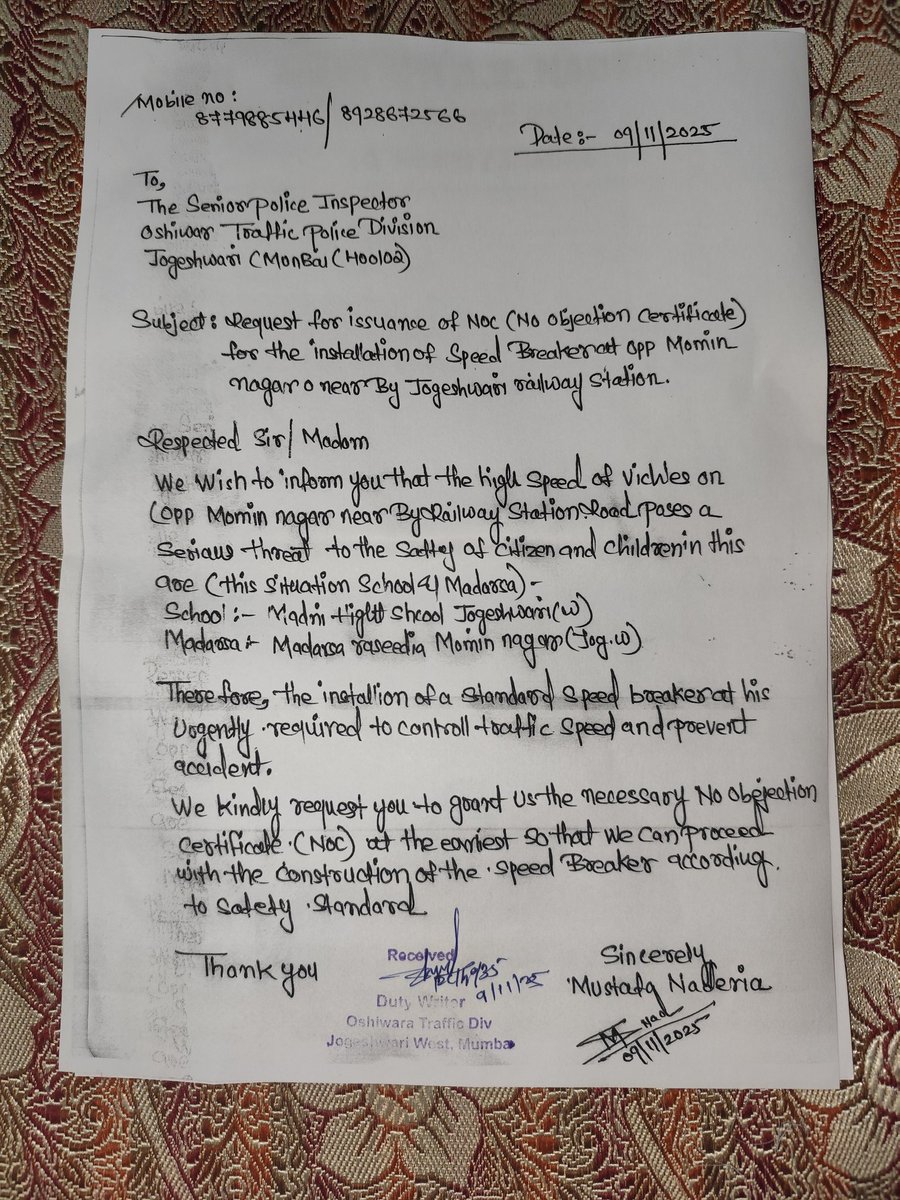 Mobile no :
8779885446 / 8928672566
Date :- 09/11/2025
To,
The Senior Police Inspector
Oshiwar Traffic Police Division
Jogeshwari (MonBai (400102)
Subject : Request for issuance of Noc (No objection certificate)
for the installation of Speed Breaker at opp Momin
nagar o near By Jogeshwari railway Station.
Respected Sir/ Madam
We Wish to inform you that the high Speed of vichles on
(opp Momin nagar near By Railway Station Road poses a
Serious threat to the Saftey of Citizen and children in this
are (this Situation School & Madarsa) -
School :- High Shcool Jogeshwari (W)
Madarsa :- Madarsa raseedia Momin nagar (Jog.W)
Therefore, the installion of a Standard Speed breaker at his
Urgently required to controll traffic Speed and prevent
accident.
We Kindly request you to grant us the necessary No obejection
certificate (NOC) at the earliest so that we can proceed
with the construction of the Speed Breaker according
to Safety Standard
Thank you
Sincerely
Mustafa
Received
9/11/25
Duty Writer
Oshiwara Traffic Div
Jogeshwari West, Mumba
09/11/2025